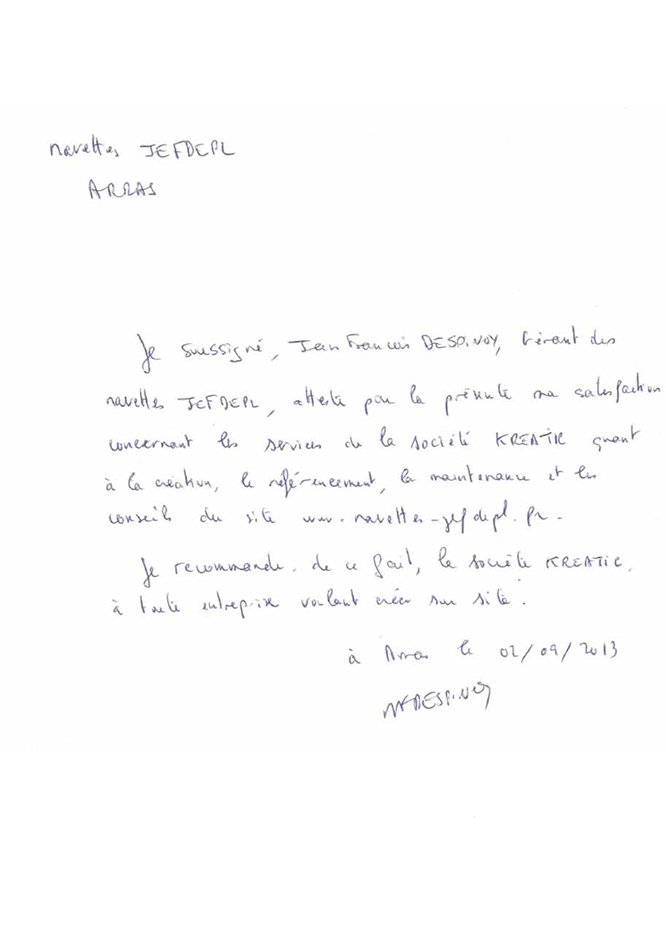 navettes JEFDEPL
ARRAS
Je soussigné, Jean François DESPINOY, Gérant des
navettes JEFDEPL, atteste par la présente ma satisfaction
concernant les services de la société KREATIC quant
à la création, le référencement, la maintenance et les
conseils du site www.navettes-jefdepl.fr.
Je recommande, de ce fait, la société KREATIC,
à toute entreprise voulant créer son site.
à Arras le 02/09/2013
JF DESPINOY